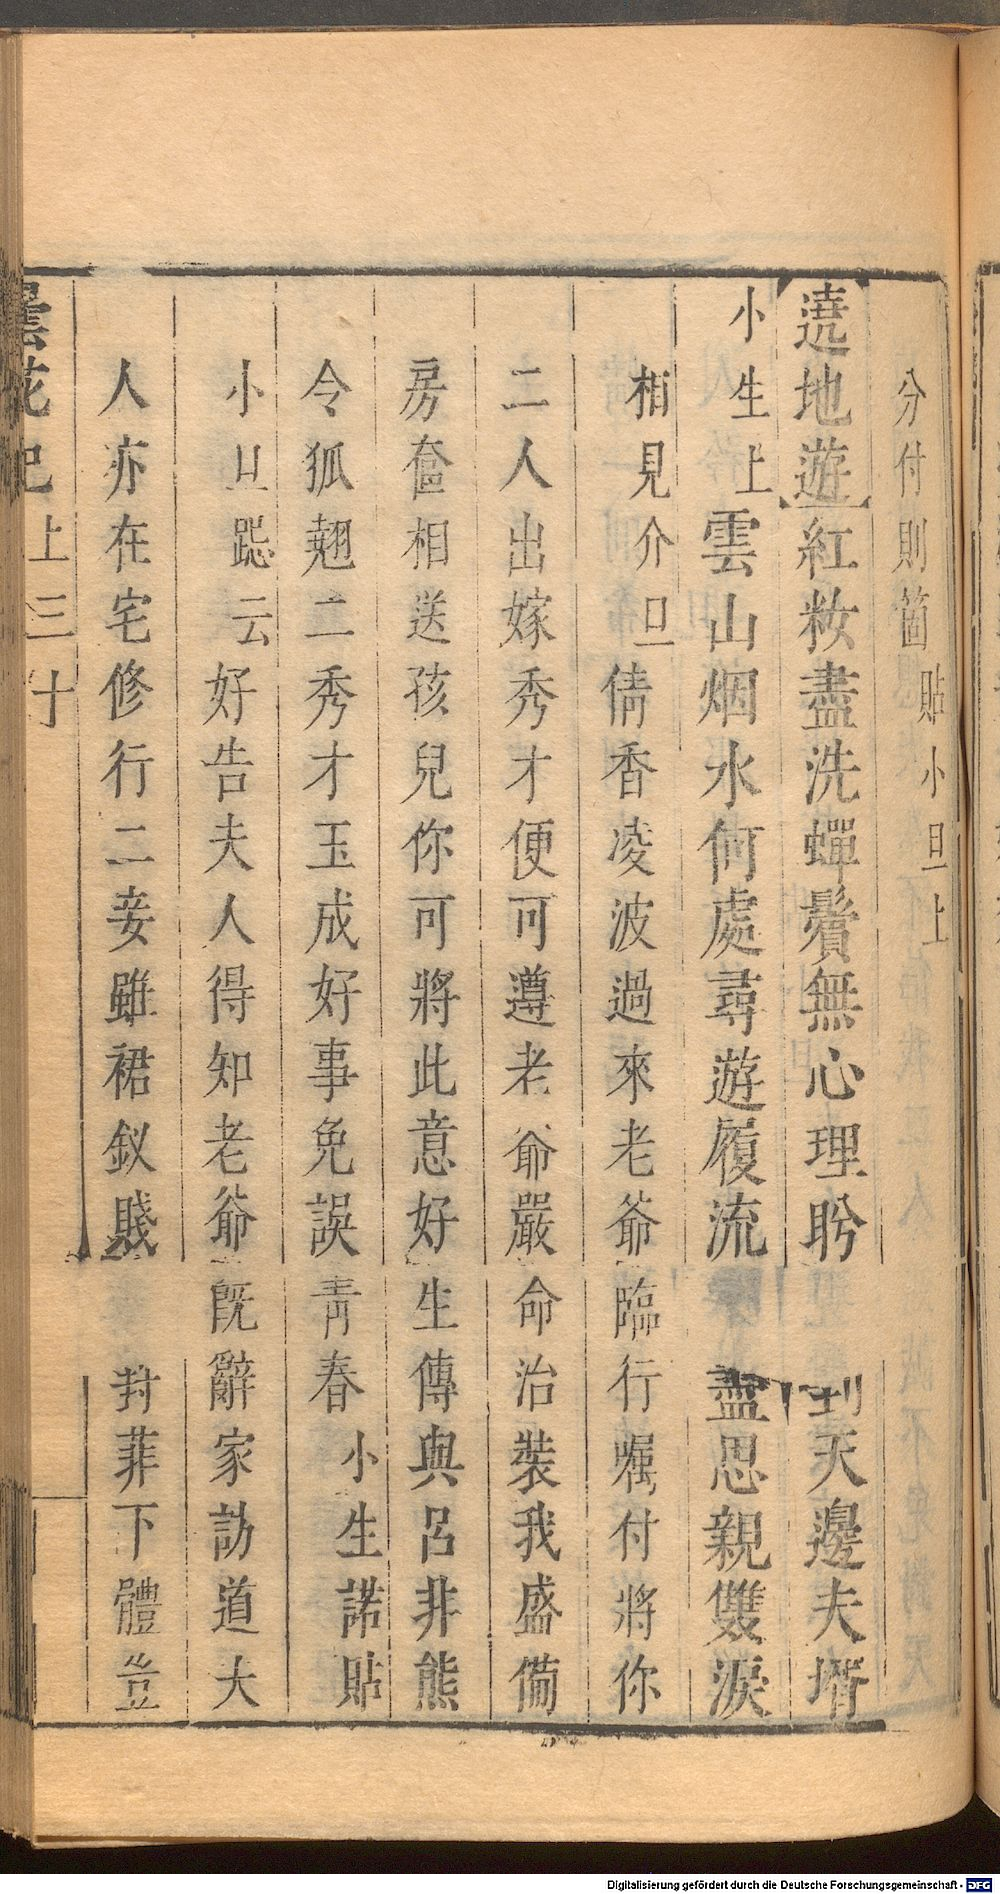 分付則箇貼小旦上
遶地遊紅妝盡洗蟬鬢無心理盼到天邊夫壻
小生上雲山烟水何處尋遊履流盡思親雙淚
相見介旦倩香凌波過來老爺臨行囑付將你
二人出嫁秀才便可遵老爺嚴命治裝我盛備
房奩相送孩兒你可將此意好生傳與呂非熊
令狐翹二秀才玉成好事免誤青春小生諾貼
小旦跽云好告夫人得知老爺既辭家訪道大
人亦在宅修行二妾雖裙釵賤 葑菲下體豈
曇花記上三十
Digitalisierung gefördert durch die Deutsche Forschungsgemeinschaft - DFG